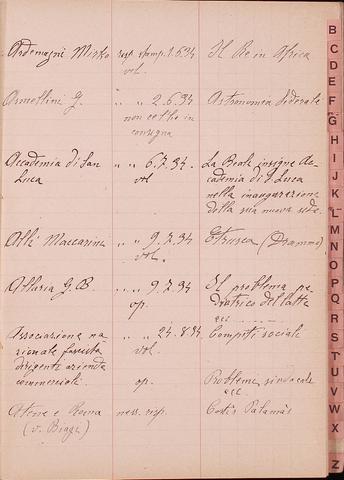 Ardemagni Mirko risp. stamp. 1.6.34 Il Re in Africa
vol.
Armellini G. " " 2.6.34 Astronomia siderale
non ce l'ho in
consegna
Accademia di San " " 6.7.34 La Reale insigne Ac-
Luca vol. cademia di S. Luca
nella inaugurazione
della sua nuova sede
Alli Maccarini " " 9.7.34 Etrusca (Dramma)
vol.
Allaria G. B " " 9.7.34 Il problema pe-
op. diatrico del latte
ecc
Associazione na- " " 24.8.34 Compiti sociali
zionale fascista vol.
dirigenti aziende
commerciali op. Problemi sindacali
ecc
Atene e Roma ness. risp. Costìs Palamàs
(v. Biagi)
B
C
D
E
F
G
H
I
J
K
L
M
N
O
P
Q
R
S
T
U
V
W
X
Z